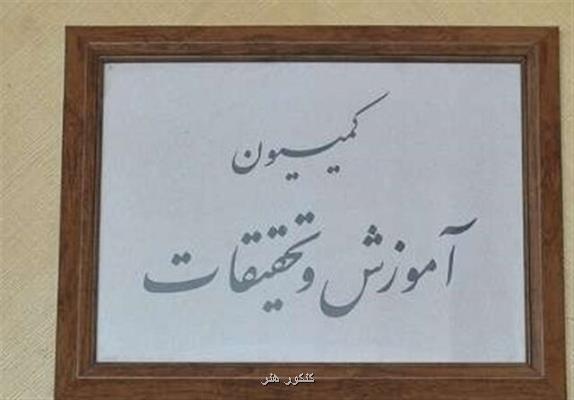 کمیسیون
آموزش و تحقیقات
کنکور هنر